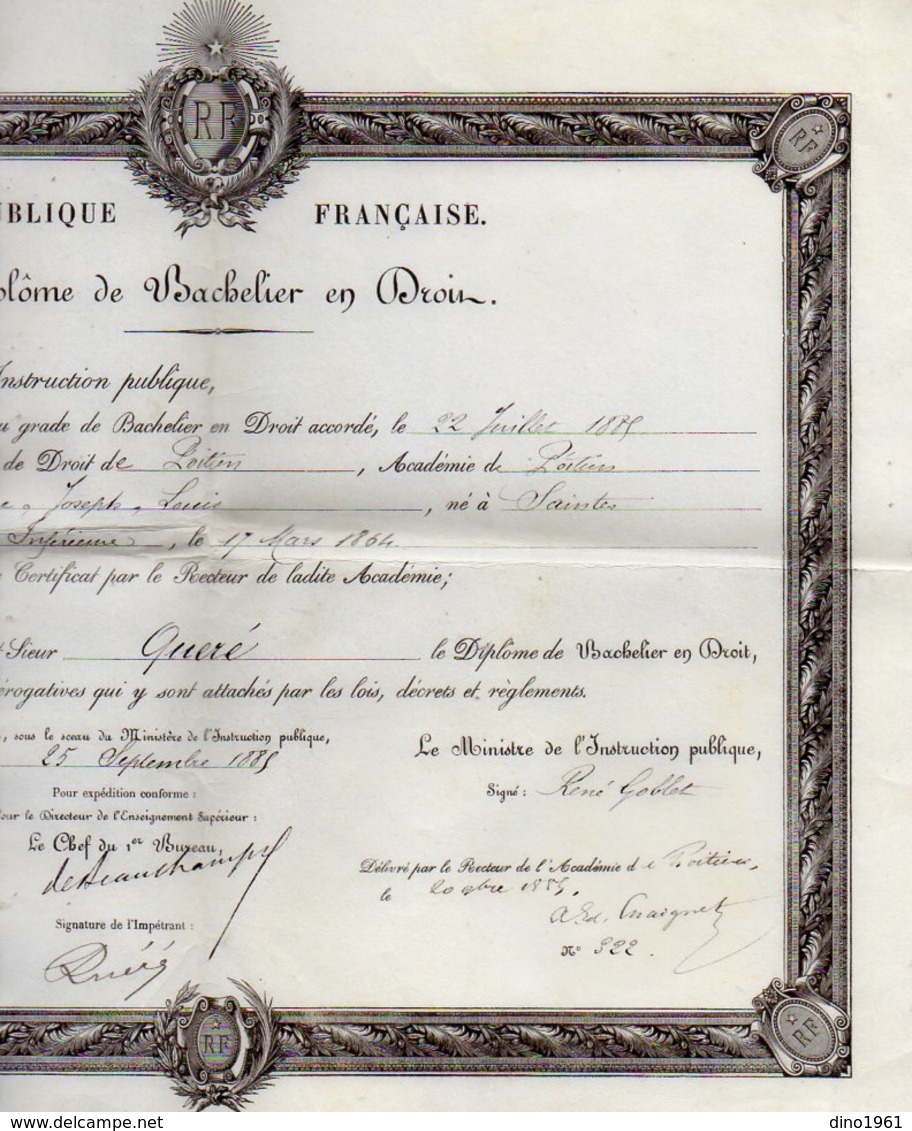 RF
RF
UBLIQUE FRANÇAISE.
plôme de Bachelier en Droit.
Instruction publique,
u grade de Bachelier en Droit accordé, le 22 Juillet 1885
de Droit de Poitiers, Académie de Poitiers
e, Joseph, Louis, né à Saintes
Inférieure, le 17 Mars 1864
Certificat par le Recteur de ladite Académie;
t Sieur Queré le Diplôme de Bachelier en Droit,
érogatives qui y sont attachés par les lois, décrets et règlements.
, sous le sceau du Ministère de l'Instruction publique,
25 Septembre 1885
Le Ministre de l'Instruction publique,
Signé : René Goblet
Pour expédition conforme :
our le Directeur de l'Enseignement Supérieur :
Le Chef du 1er Bureau,
de Beauchamp
Délivré par le Recteur de l'Académie de Poitiers,
le 20 1885.
A. Ed. Chaignet
N° 322.
Signature de l'Impétrant :
Quéré
RF
RF
dino1961